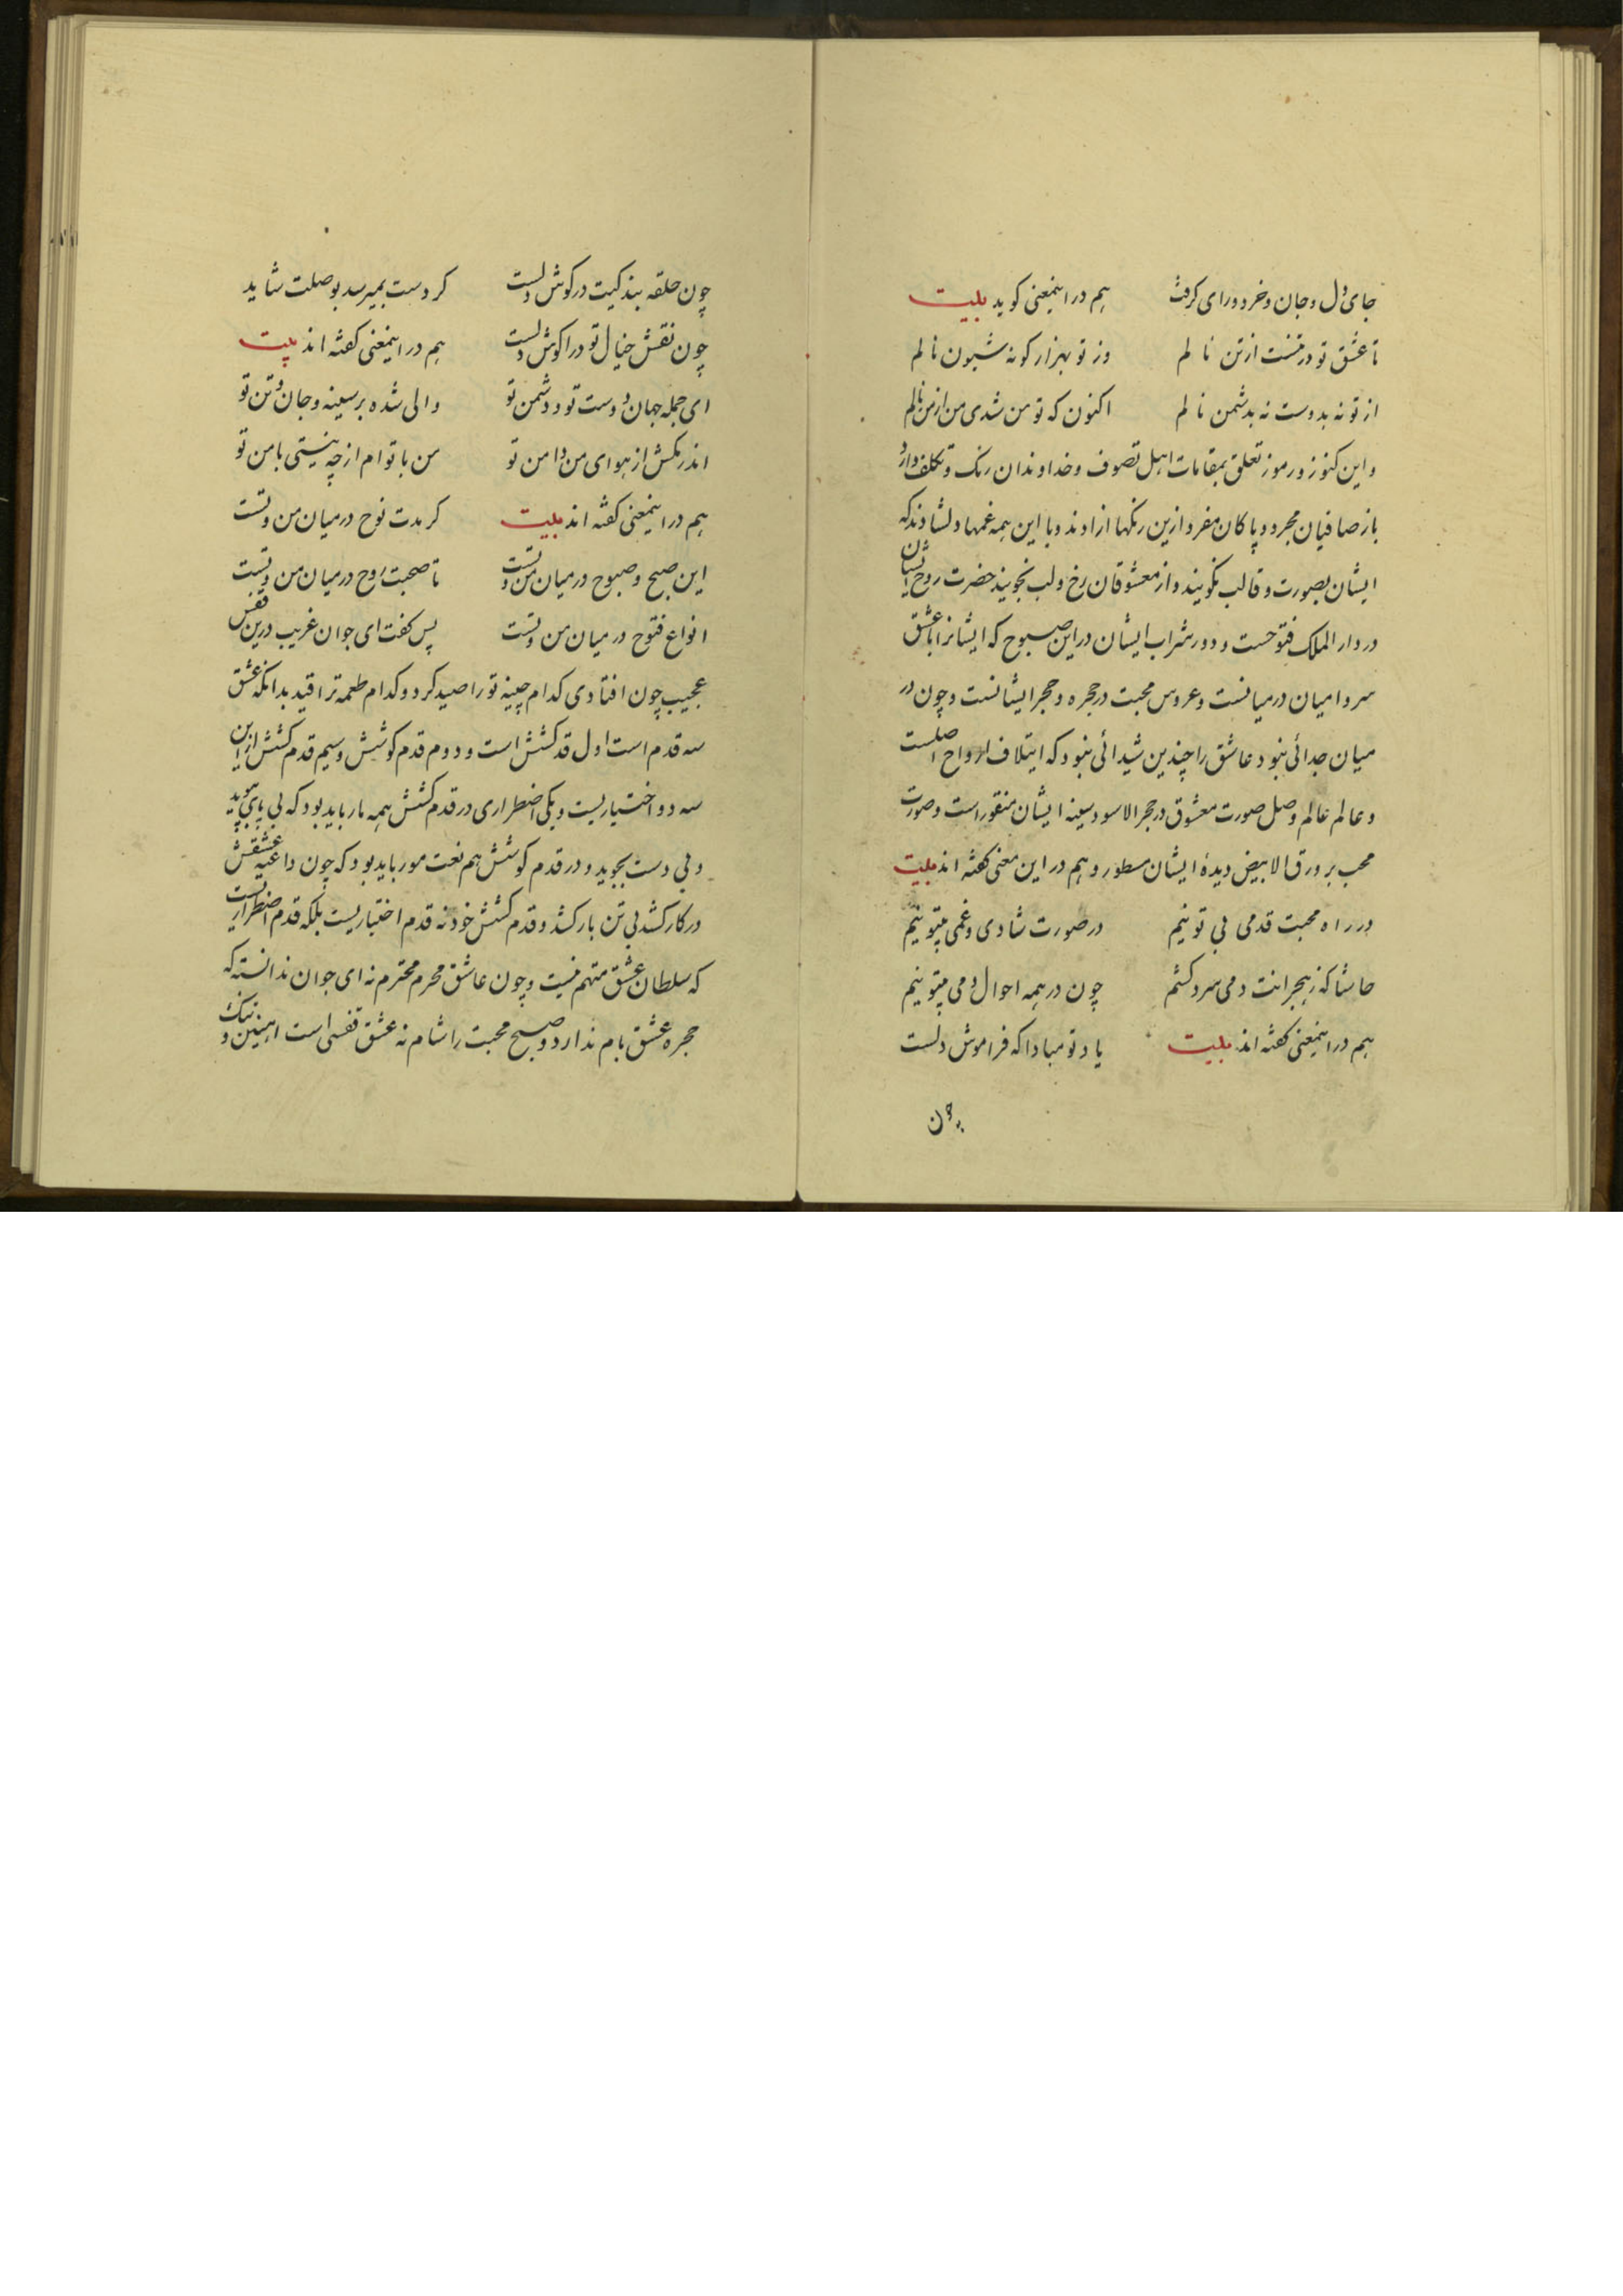 جای دل و جان و خرد و رای گرفت هم در اینمعنی کوید بیت
تا عشق تو در تنست از تن نالم وز تو بهزار کونه شیون نالم
از تو نه بدوست نه بدشمن نالم اکنون که تو من شدی من از من نالم
و این کنوز و رموز تعلق بمقامات اهل تصوف و خداوندان رنک و تکلف دارد
باز صافیان مجرد و پاکان مفرد ازین رنکها ازادند و با این همه غمها دلشادند که
ایشان بصورت و قالب نکویند و از معشوقان رخ و لب نجویند حضرت روح ایشان
در دار الملک فتوحست و دور شراب ایشان در این صبوح که ایشانرا با عشق
سر و امیان در میانست و عروس محبت در حجره و حجر ایشانست و چون در
میان جدائی نبود عاشق را چندین شیدائی نبود که ایتلاف ارواح اصلست
و عالم عالم وصل صورت معشوق در حجر الاسود سینه ایشان منقور است و صورت
محب بر ورق الابیض دیدۀ ایشان مسطور و هم در این معنی کفته اند بیت
در راه محبت قدمی بی تو نیم در صورت شادی و غمی بیتو نیم
حاشا که ز هجرانت دمی سرد کشم چون در همه احوال دمی بیتو نیم
هم در اینمعنی کفته اند بیت یاد تو مبادا که فراموش دلست
چون
چون حلقه بندکیت در کوش دلست کر دست بمیرسد بوصلت شاید
چون نقش خیال تو در اغوش دلست هم در اینمعنی کفته اند بیت
ای جمله جهان دوست تو و دشمن تو والی شده بر سینه و جان و تن تو
اندر مکش از هوای من دامن تو من با تو ام ار چه نیستی با من تو
هم در اینمعنی کفته اند بیت کر مدت نوح در میان من و تست
این صبح و صبوح در میان من و تست تا صحبت روح در میان من و تست
انواع فتوح در میان من و تست پس کفت ای جوان غریب درین قفس
عجیب چون افتادی کدام چینه تو را صید کرد و کدام طعمه ترا قید بدانکه عشق
سه قدم است اول قدم کشش است و دوم قدم کوشش و سیم قدم کشش از این
سه دو اختیاریست و یکی اضطراری در قدم کشش همه مار باید بود که بی پای بپوید
و بی دست بجوید و در قدم کوشش هم نعت مور باید بود که چون داعیه عشقش
در کار کشد بی تن بار کشد و قدم کشش خود نه قدم اختیاریست بلکه قدم اضطراریست
که سلطان عشق متهم نیست و چون عاشق محرم محترم نه ای جوان ندانسته که
حجره عشق بام ندارد و صبح محبت را شام نه عشق قفسی است اهنین و